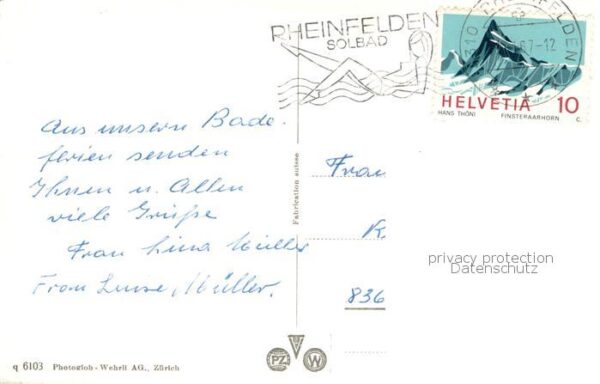 RHEINFELDEN
SOLBAD
HELVETIA 10
HANS THÖNI FINSTERAARHORN C.
Aus unsern Bade-
ferien senden
Ihnen u. Allen
viele Grüsse
Frau Lina Müller
Frau Luise Müller.
Fabrication suisse
Frau
K
privacy protection
Datenschutz
836
PZ W
q 6103 Photoglob-Wehrli AG., Zürich